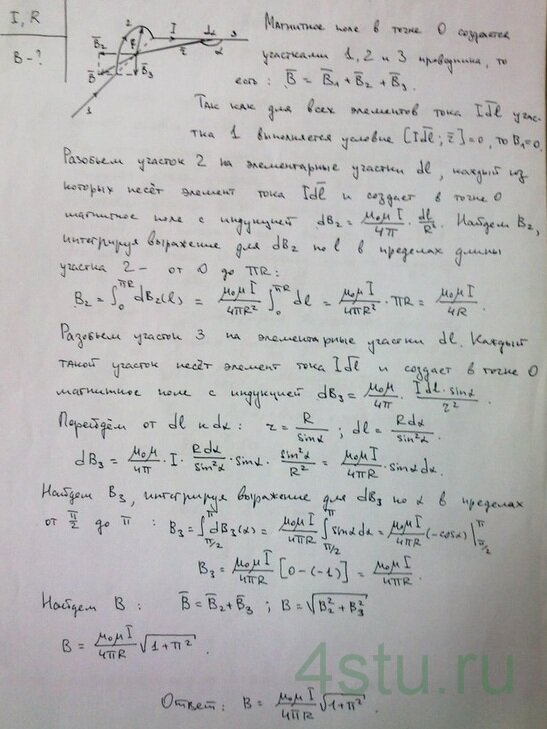 I, R
B - ?
2 I dα 3
B̄₂ R r α
B̄ B̄₃
1
Магнитное поле в точке O создается
участками 1, 2 и 3 проводника, то
есть: B̄ = B̄₁ + B̄₂ + B̄₃.
Так как для всех элементов тока Idl̄ учас-
тка 1 выполняется условие [Idl̄; r̄] = 0, то B₁=0.
Разобьем участок 2 на элементарные участки dl, каждый из
которых несёт элемент тока Idl̄ и создает в точке O
магнитное поле с индукцией dB₂ = μ₀μI/4π · dl/R². Найдем B₂,
интегрируя выражение для dB₂ по l в пределах длины
участка 2 – от 0 до πR:
B₂ = ∫₀^πR dB₂(l) = μ₀μI/4πR² ∫₀^πR dl = μ₀μI/4πR² · πR = μ₀μI/4R.
Разобьем участок 3 на элементарные участки dl. Каждый
такой участок несёт элемент тока Idl̄ и создает в точке O
магнитное поле с индукцией dB₃ = μ₀μ/4π · Idl·sinα/r².
Перейдём от dl к dα: r = R/sinα; dl = Rdα/sin²α.
dB₃ = μ₀μ/4π · I · Rdα/sin²α · sinα · sin²α/R² = μ₀μI/4πR · sinαdα.
Найдем B₃, интегрируя выражение для dB₃ по α в пределах
от π/2 до π: B₃ = ∫π/2^π dB₃(α) = μ₀μI/4πR ∫π/2^π sinαdα = μ₀μI/4πR (-cosα)|π/2^π
B₃ = μ₀μI/4πR [0-(-1)] = μ₀μI/4πR.
Найдем B: B̄ = B̄₂ + B̄₃; B = √(B₂² + B₃²)
B = μ₀μI/4πR √(1+π²).
4stu.ru
Ответ: B = μ₀μI/4πR √(1+π²).